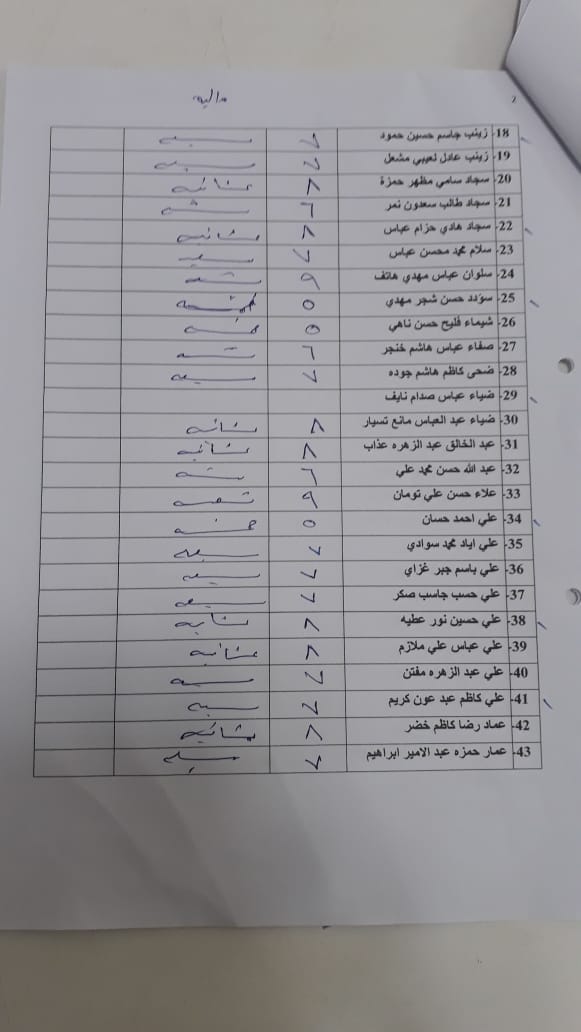 2
مالية
18- زينب جاسم حسين حمود ٧ سبعه
19- زينب عادل لعيبي مشعل ٧ سبعه
20- سجاد سامي مظهر حمزة ٨ ثمانيه
21- سجاد طالب سعدون نمر ٦ سته
22- سجاد هادي حزام عباس ٨ ثمانيه
23- سلام محمد محسن عباس ٧ سبعه
24- سلوان عباس مهدي هاتف ٩ تسعه
25- سؤدد حسن شجر مهدي ٥ خمسه
26- شيماء فليح حسن ناهي ٥ خمسه
27- صفاء عباس هاشم خنجر ٦ سته
28- ضحى كاظم هاشم جوده ٧ سبعه
29- ضياء عباس صدام نايف
30- ضياء عبد العباس مانع تسيار ٨ ثمانيه
31- عبد الخالق عبد الزهره عذاب ٨ ثمانيه
32- عبد الله حسن محمد علي ٦ سته
33- علاء حسن علي تومان ٩ تسعه
34- علي احمد حسان ٥ خمسه
35- علي اياد محمد سوادي ٧ سبعه
36- علي باسم جبر غزاي ٧ سبعه
37- علي حسب جاسب صكر ٧ سبعه
38- علي حسين نور عطيه ٨ ثمانيه
39- علي عباس علي ملازم ٨ ثمانيه
40- علي عبد الزهره مفتن ٧ سبعه
41- علي كاظم عبد عون كريم ٧ سبعه
42- عماد رضا كاظم خضر ٨ ثمانيه
43- عمار حمزه عبد الامير ابراهيم ٧ سبعه